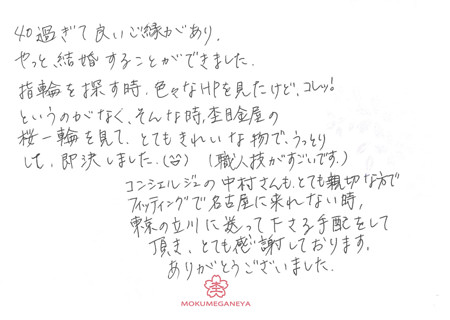 40過ぎて良いご縁があり、
やっと、結婚することができました。
指輪を探す時、色々なHPを見たけど、コレッ!
というのがなく、そんな時、杢目金屋の
桜一輪を見て、とてもきれいな物で、うっとり
して、即決しました。(^^) (職人技がすごいです。)
コンシェルジュの中村さんも、とても親切な方で
フィッティングで名古屋に来れない時、
東京の立川に送って下さる手配をして
頂き、とても感謝しております。
ありがとうございました。
杢
MOKUMEGANEYA